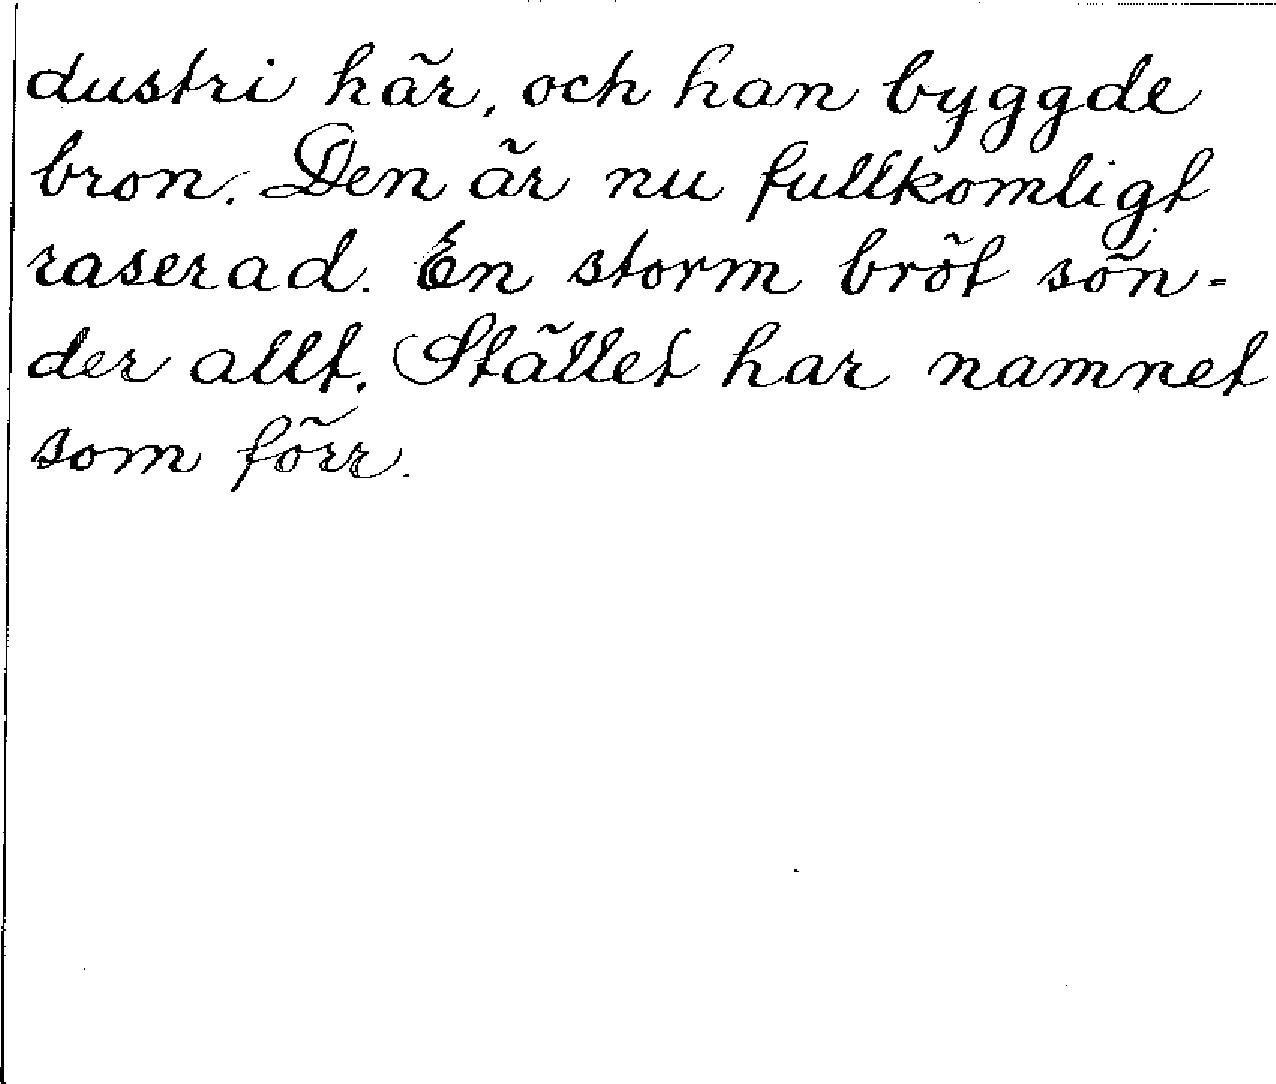 dustri här, och han byggde
bron. Den är nu fullkomligt
raserad. En storm bröt sön-
der allt. Stället har namnet
som förr.